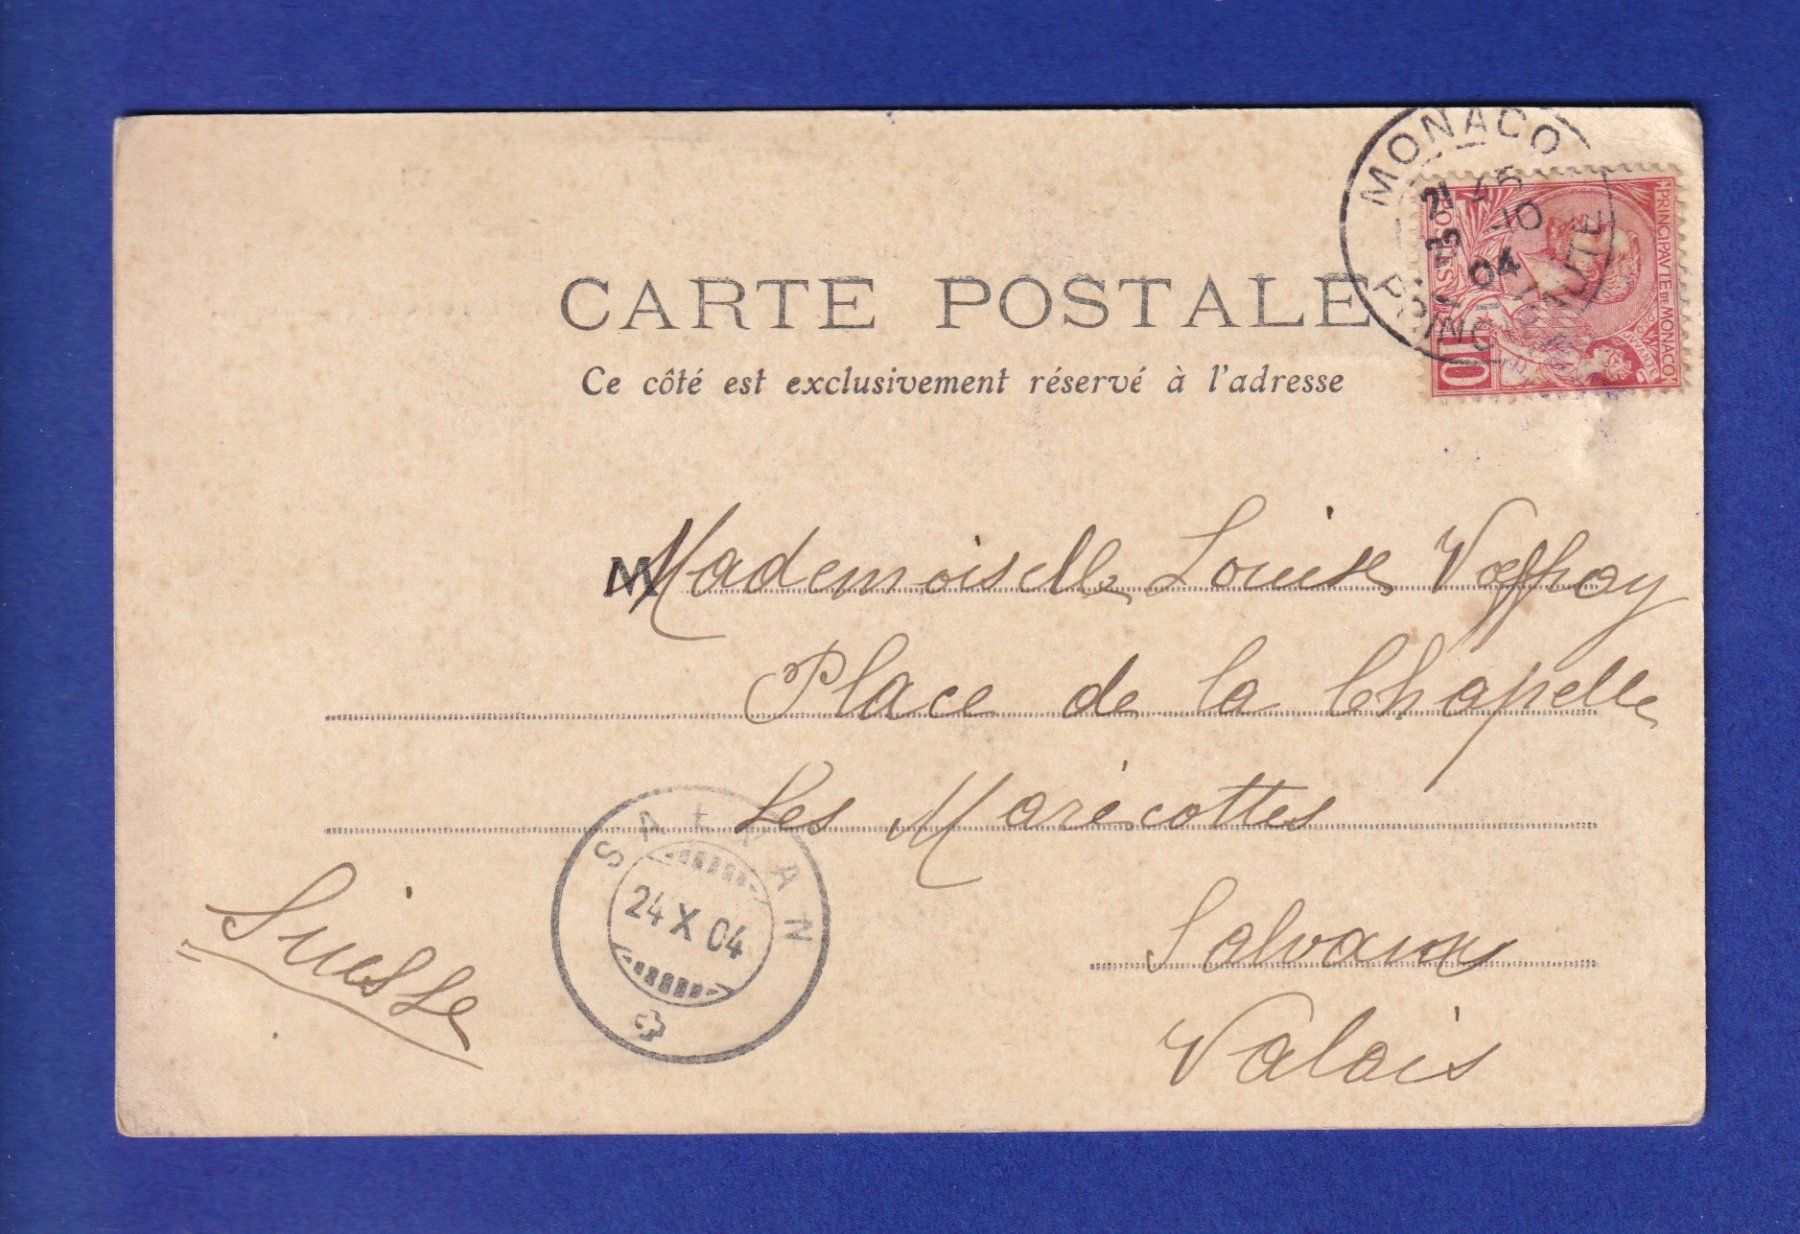 CARTE POSTALE
Ce côté est exclusivement réservé à l'adresse
MONACO
PRINCIPAUTE
21
10
04
PRINCIPAUTÉ DE MONACO
POSTES
10
Mademoiselle Louise Voeffray
Place de la Chapelle
Les Marécottes
Salvan
Valais
Suisse
SALVAN
24 X 04